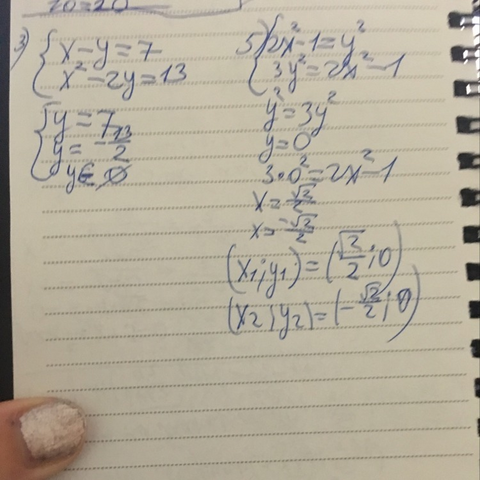 20=20
3) { x-y=7
x²-2y=13
{ y=7
y=-13/2
y∈∅
5) { 2x²-1=y²
3y²=2x²-1
y²=3y²
y=0
3·0²=2x²-1
x=√2/2
x=-√2/2
(x₁;y₁)=(√2/2;0)
(x₂;y₂)=(-√2/2;0)